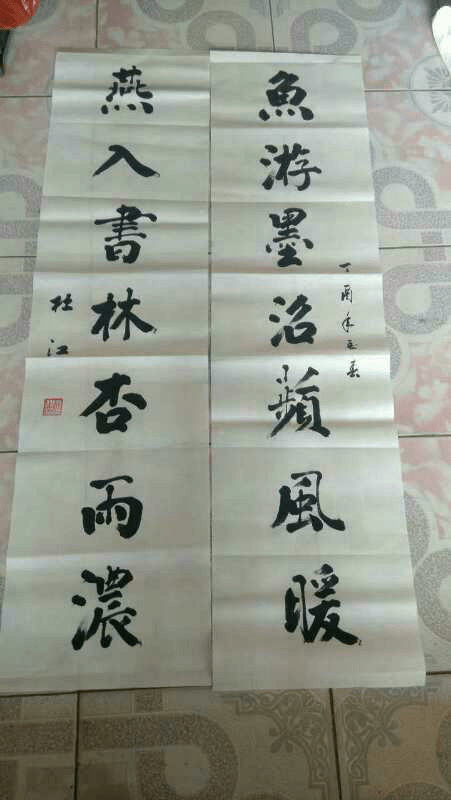 魚游墨沼蘋風暖
丁酉年春
燕入書林杏雨濃
杜江